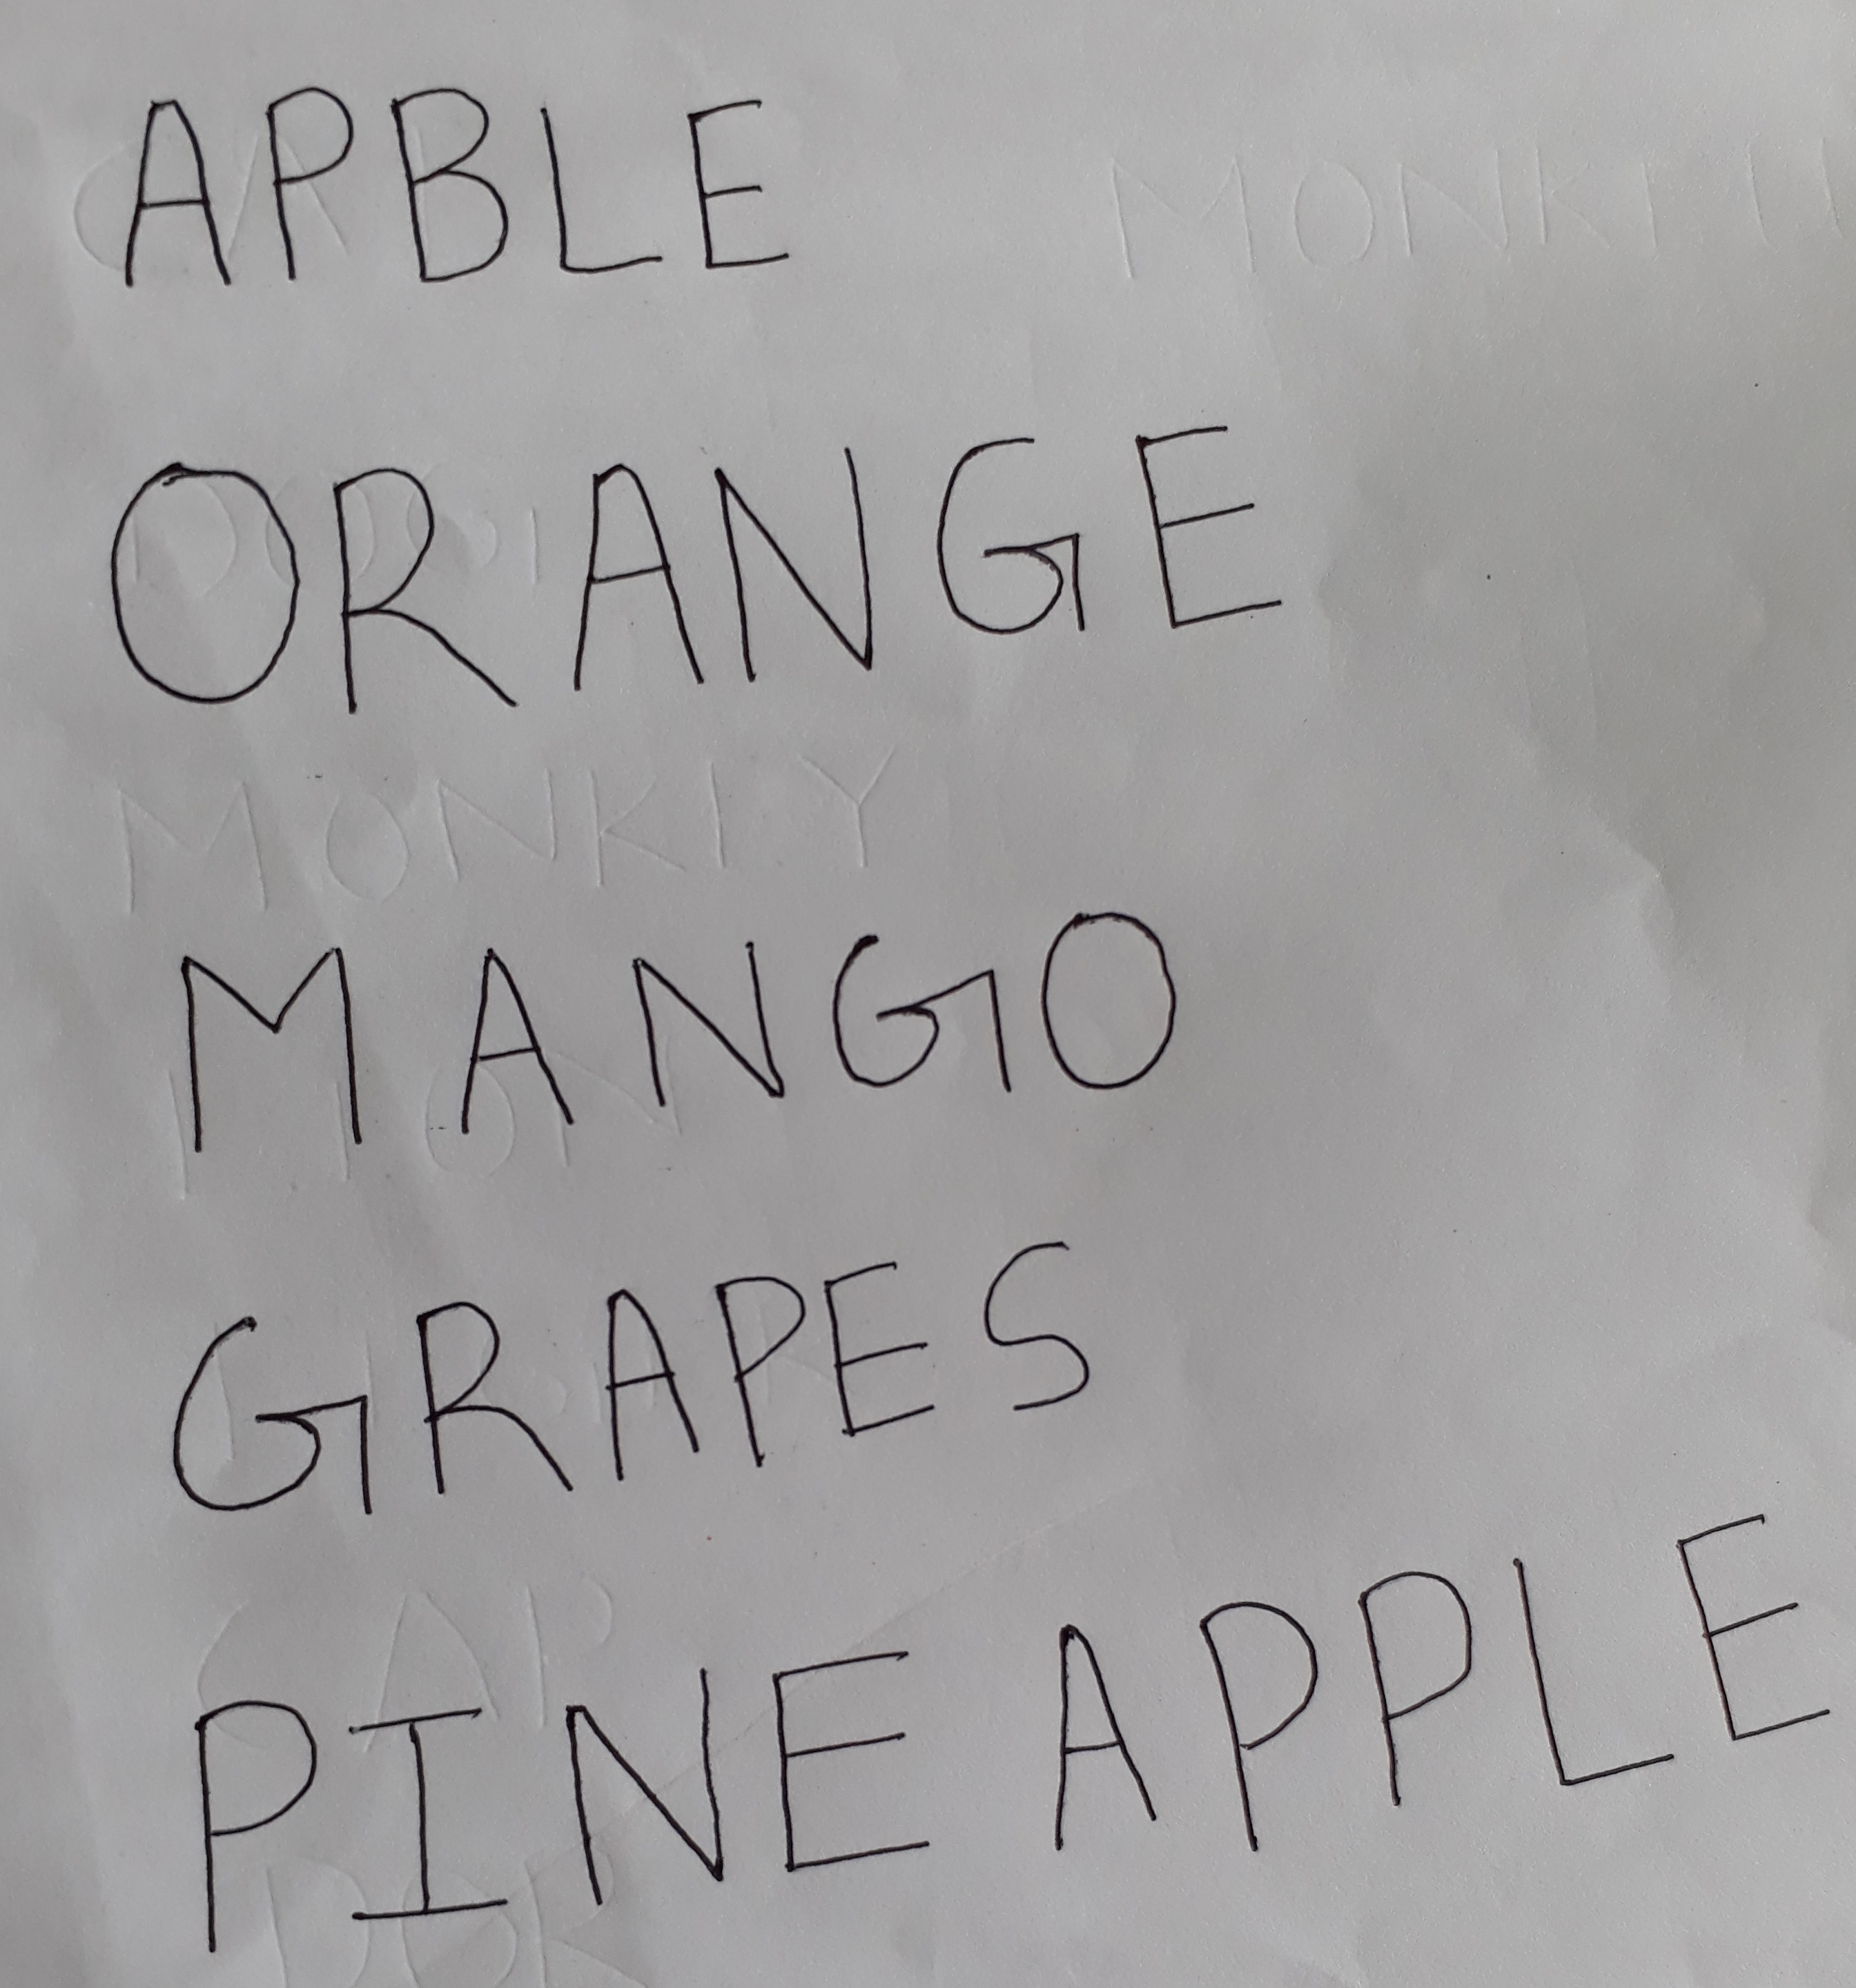 APBLE
ORANGE
MANGO
GRAPES
PINE APPLE